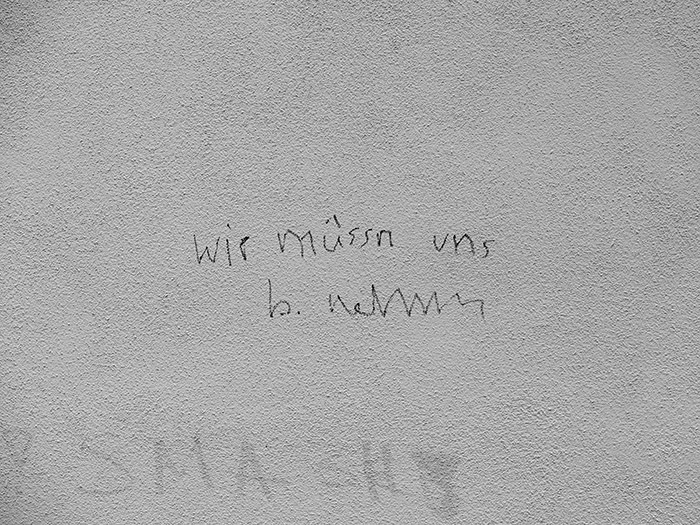 wir müssn uns
b. nehmn
SMASH